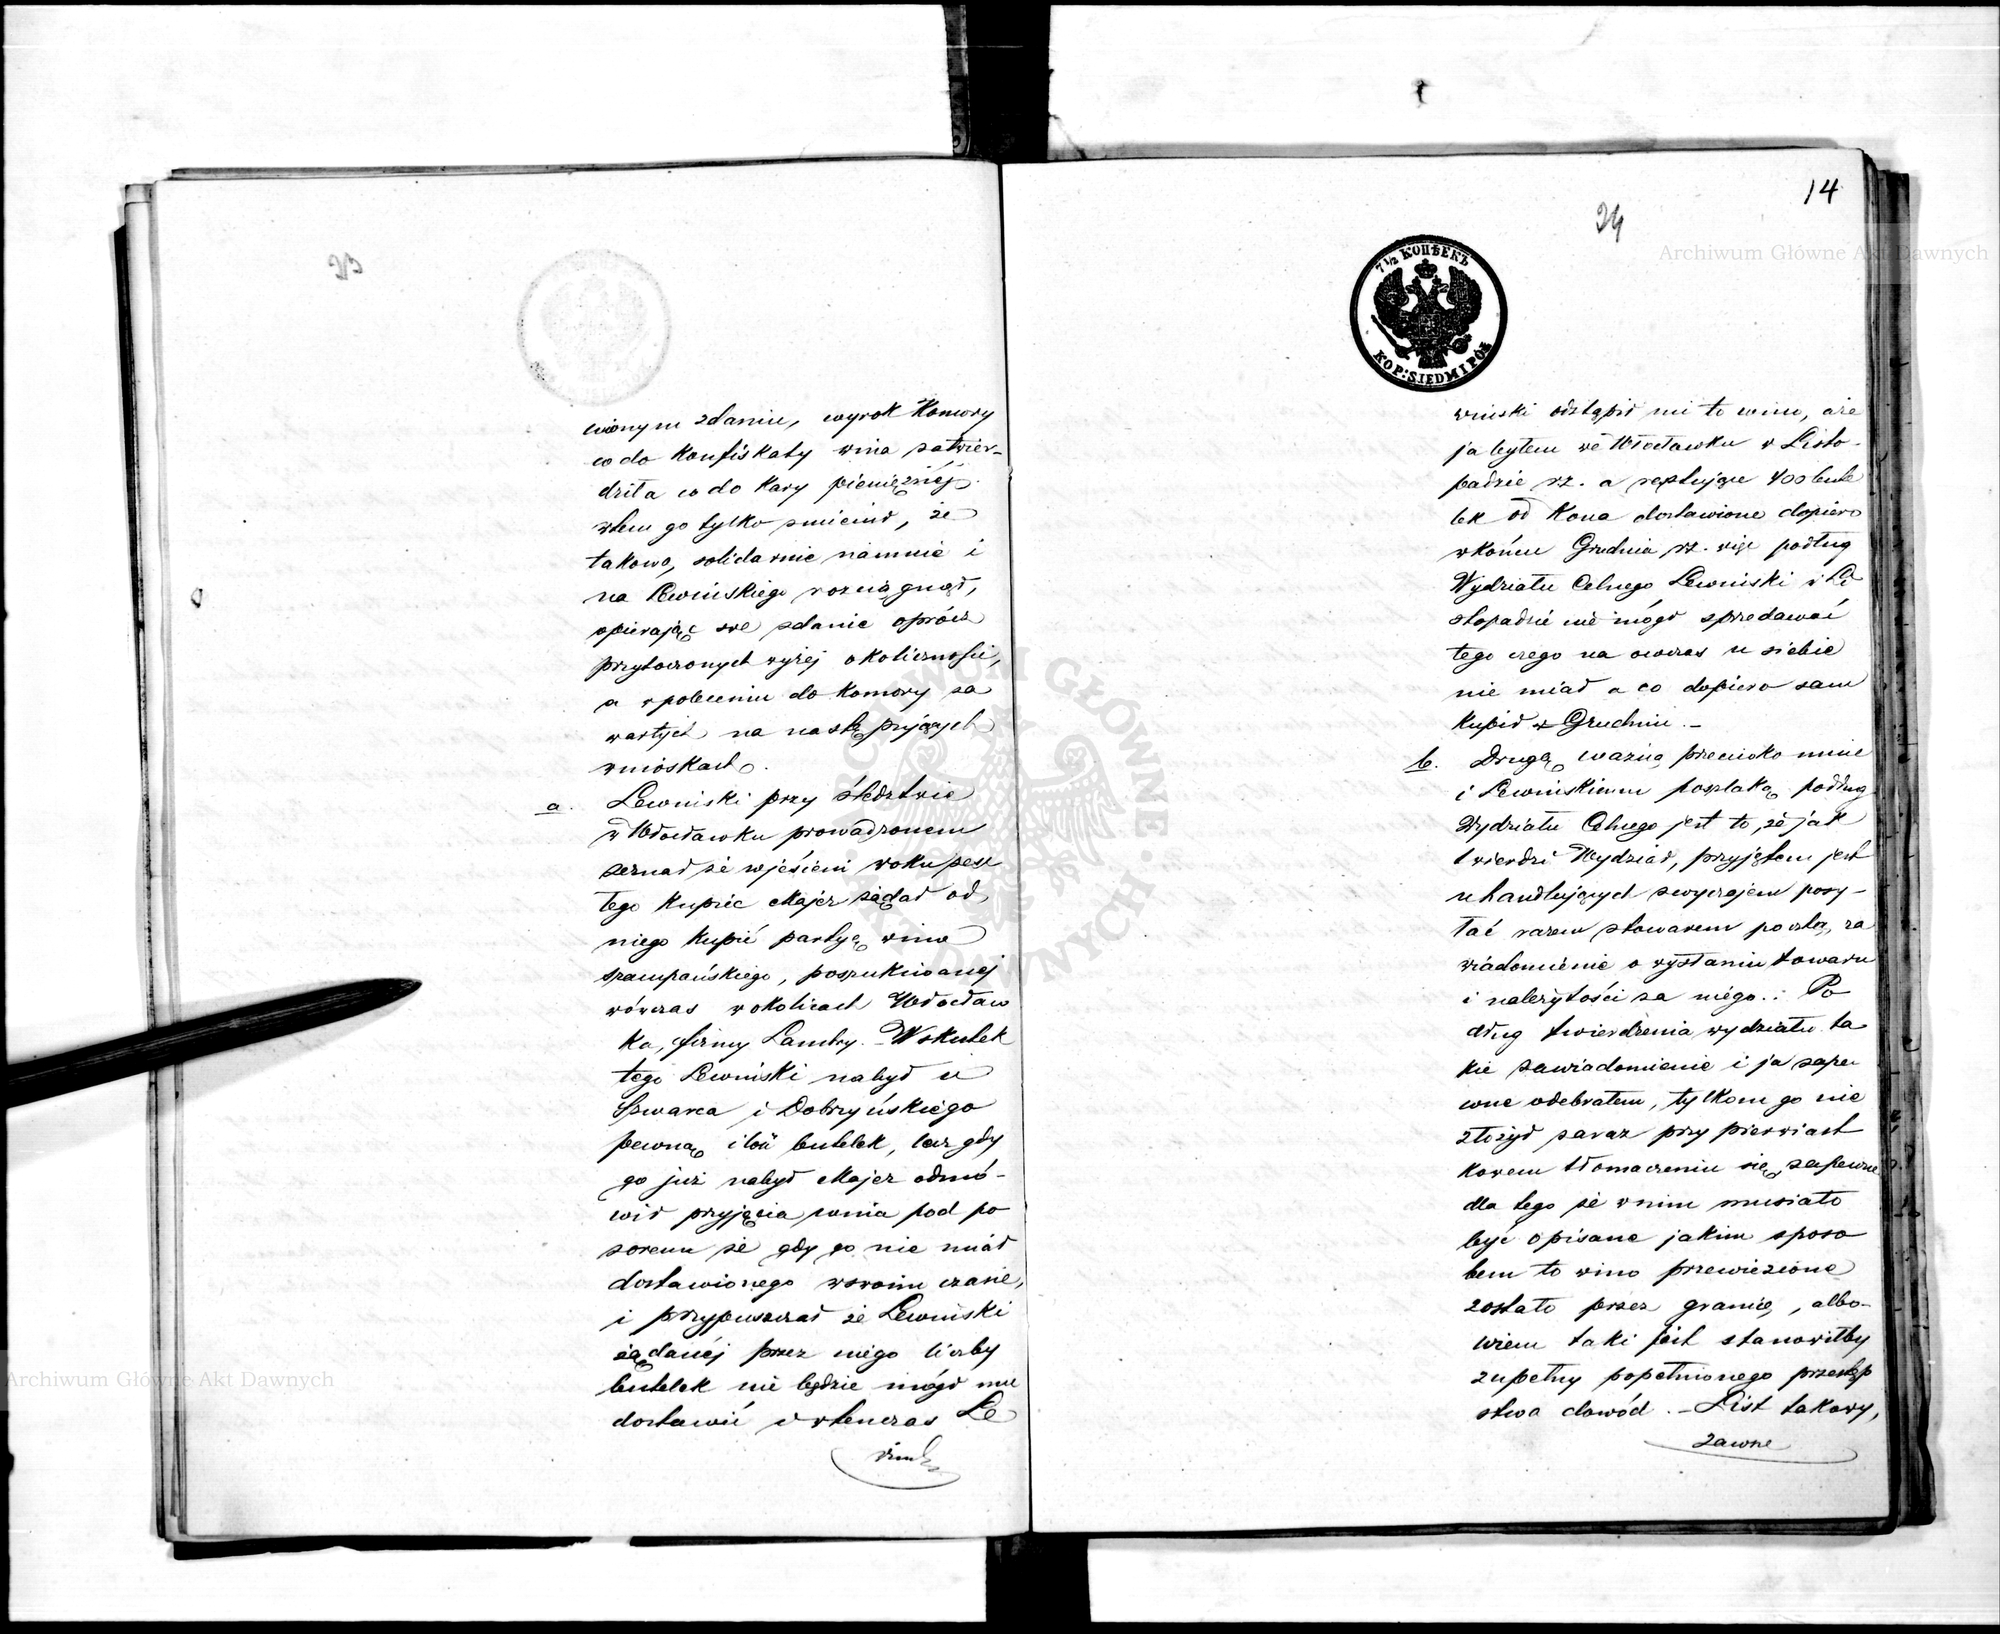 23
wionym zdaniu, wyrok Komory
co do Konfiskaty wina zatwier-
dziła co do Kary pieniężnéj
wtem go tylko zmienił, że
takowo, solidarnie na mnie i
na Lewińskiego rozciągnął,
opierając swe zdanie oprócz
przytoczonych wyżej okoliczności,
a w poleceniu do Komory za
wartych na następujących
wnioskach.
a. Lewinski przy śledztwie
w Włocławku prowadzonem
zeznał że w jesieni roku zesz
tego Kupiec Majer żądał od
niego Kupić partyą wina
szampańskiego, poszukiwanej
wówczas w okolicach Włocław
ka, firmy Lambry. – W skutek
tego Lewinski nabył u
Szwarca i Dobrzyńskiego
pewną ilość butelek, lecz gdy
go już nabył Majer odmó-
wił przyjęcia wina pod po
zorem że gdy go nie miał
dostawionego w swoim czasie,
i przypuszczał że Lewinski
żądanéj przez niego liczby
butelek nie będzie mógł mu
dostawić i wtenczas Le
winski
14
24
7½ КОПѢЕКЪ
KOP: SIEDM I PÓŁ
winski odstąpił mi to wino, że
ja byłem we Włocławku w Listo-
padzie rz. a resztujące 400 bute
lek od Kona dostawione dopiero
w końcu Grudnia rz. więc podług
Wydziału Celnego Lewinski w Li
stopadzie nie mógł sprzedawać
tego czego na owczas u siebie
nie miał a co dopiero sam
Kupił w Grudniu. –
b. Drugą ważną przeciwko mnie
i Lewinskiemu poszlaką podług
Wydziału Celnego jest to, że jak
twierdzi Wydział, przyjętem jest
u handlujących zwyczajem posy-
łać razem z towarem pocztą, za
wiadomienie o wysłaniu towaru
i należytości za niego. : Po
dług twierdzenia wydziału ta
kie zawiadomienie i ja zape
wne odebrałem, tylkom go nie
złożył zaraz przy pierwiast
kowem tłomaczeniu się, zapewne
dla tego że w nim musiało
być opisane jakim sposo
bem to wino przewiezione
zostało przez granicę, albo-
wiem taki list stanowiłby
zupełny popełnionego przestęp
stwa dowód. – List takowy,
zawne
Archiwum Główne Akt Dawnych
Archiwum Główne Akt Dawnych
ARCHIWUM GŁÓWNE AKT DAWNYCH